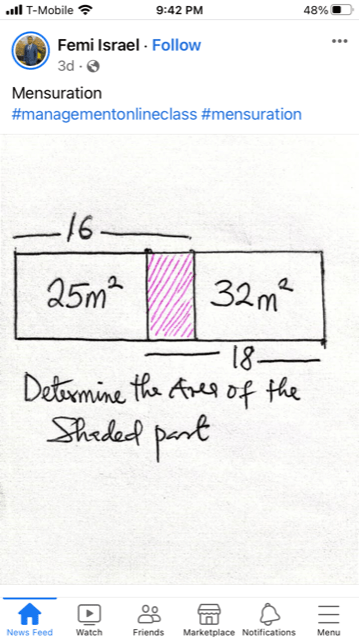 T-Mobile 9:42 PM 48%
Femi Israel · Follow
3d ·
Mensuration
#managementonlineclass #mensuration
16
25m² 32m²
18
Determine the Area of the
Shaded part
News Feed Watch Friends Marketplace Notifications Menu